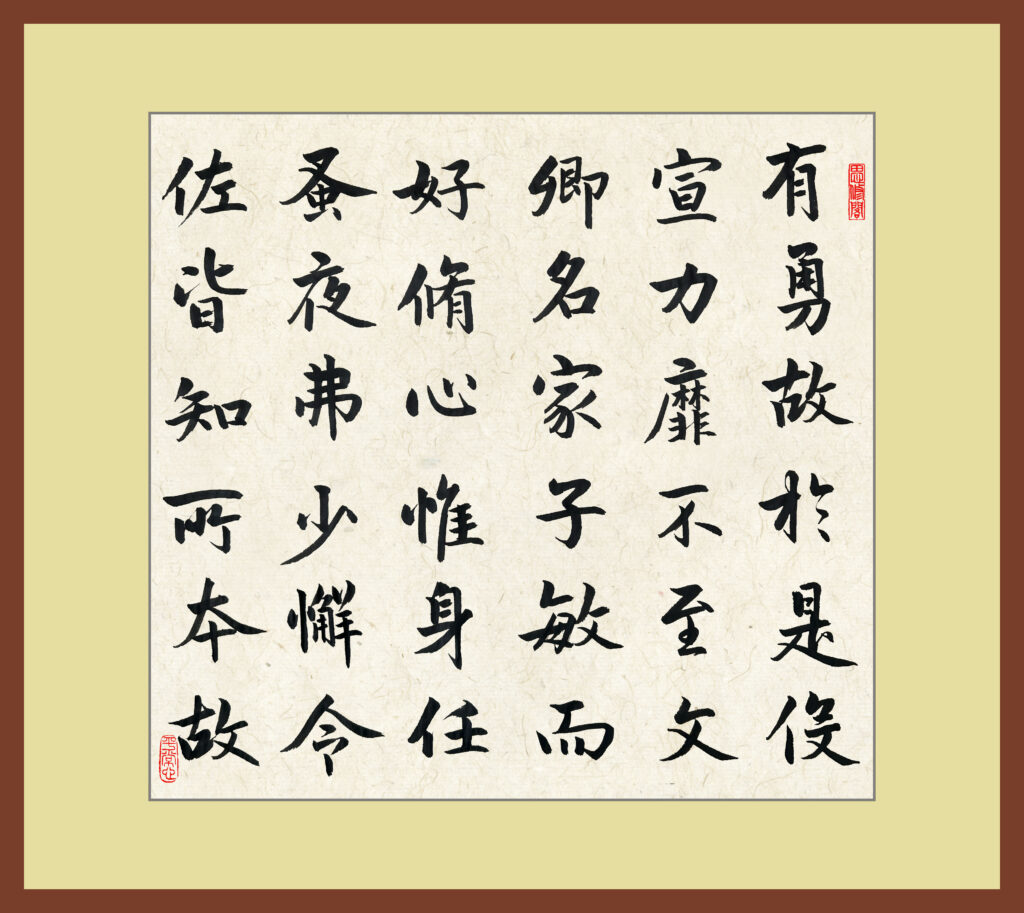 有勇故於是伇
宣力靡不至文
卿名家子敏而
好脩心惟身任
蚤夜弗少懈令
佐皆知所本故
思修閣
平常心